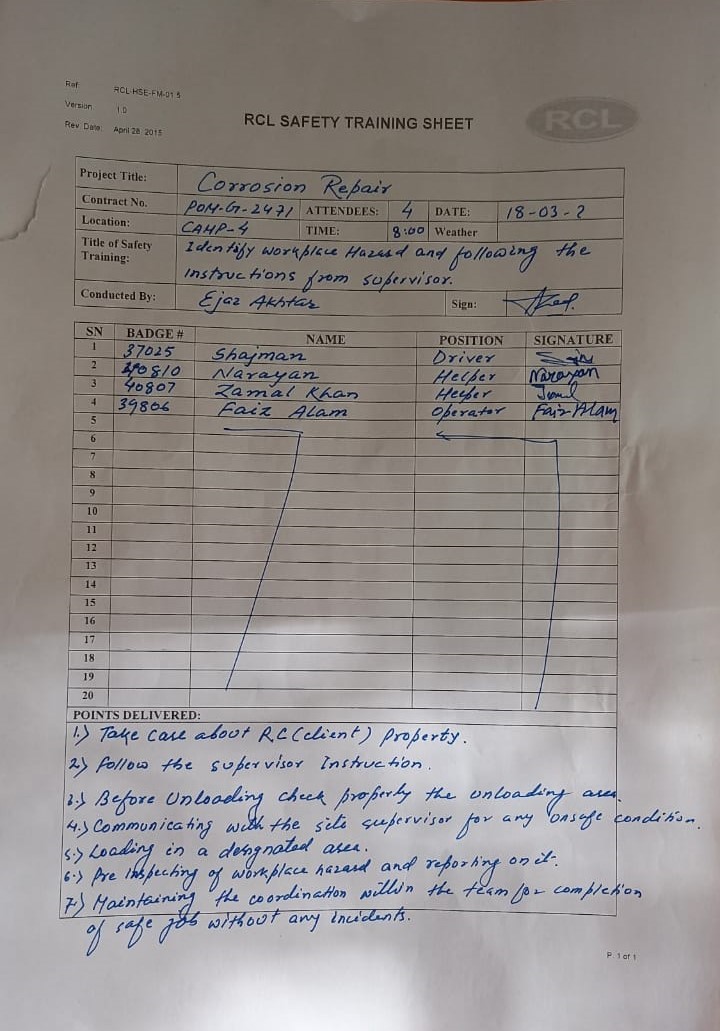 Ref: RCL-HSE-FM-01.5
Version 1.0
Rev. Date: April 28, 2015
RCL SAFETY TRAINING SHEET
RCL
Project Title: Corrosion Repair
Contract No. POM-G-2471 ATTENDEES: 4 DATE: 18-03-2
Location: CAMP-4 TIME: 8:00 Weather
Title of Safety Training: Identify workplace Hazard and following the
instructions from supervisor.
Conducted By: Ejaz Akhtar Sign:
SN BADGE # NAME POSITION SIGNATURE
1 37025 Shajman Driver
2 40810 Narayan Helper Narayan
3 40807 Zamal Khan Helper
4 39806 Faiz Alam Operator Faiz Alam
5
6
7
8
9
10
11
12
13
14
15
16
17
18
19
20
POINTS DELIVERED:
1.) Take care about R.C (client) property.
2.) follow the supervisor Instruction.
3.) Before Unloading check properly the unloading area.
4.) Communicating with the site supervisor for any unsafe condition.
5.) Loading in a designated area.
6.) Pre inspecting of workplace hazard and reporting on it.
7.) Maintaining the coordination within the team for completion
of safe job without any incidents.
P. 1 of 1